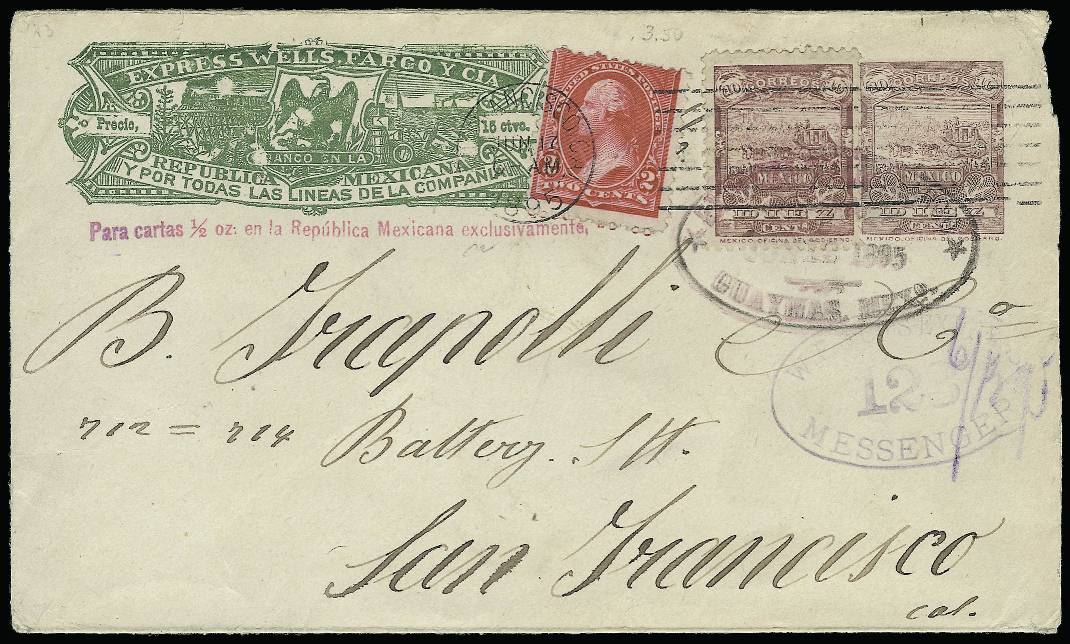 3.50
EXPRESS WELLS, FARGO Y CIA
Precio,
15 ctvs.
FRANCO EN LA
REPUBLICA MEXICANA
Y POR TODAS LAS LINEAS DE LA COMPAÑIA
Para cartas ½ oz: en la República Mexicana exclusivamente.
UNITED STATES POSTAGE
TWO CENTS
2
JUN 17
AM
1895
CORREOS
MEXICO
DIEZ
CENT.
MEXICO. OFICINA DEL GOBIERNO.
CORREOS
MEXICO
DIEZ
CENT.
MEXICO. OFICINA DEL GOBIERNO.
1895
GUAYMAS, MEXO.
MESSENGER
B. Trapolli & Co
712 = 714 Battery. Stt.
San Francisco
Cal.